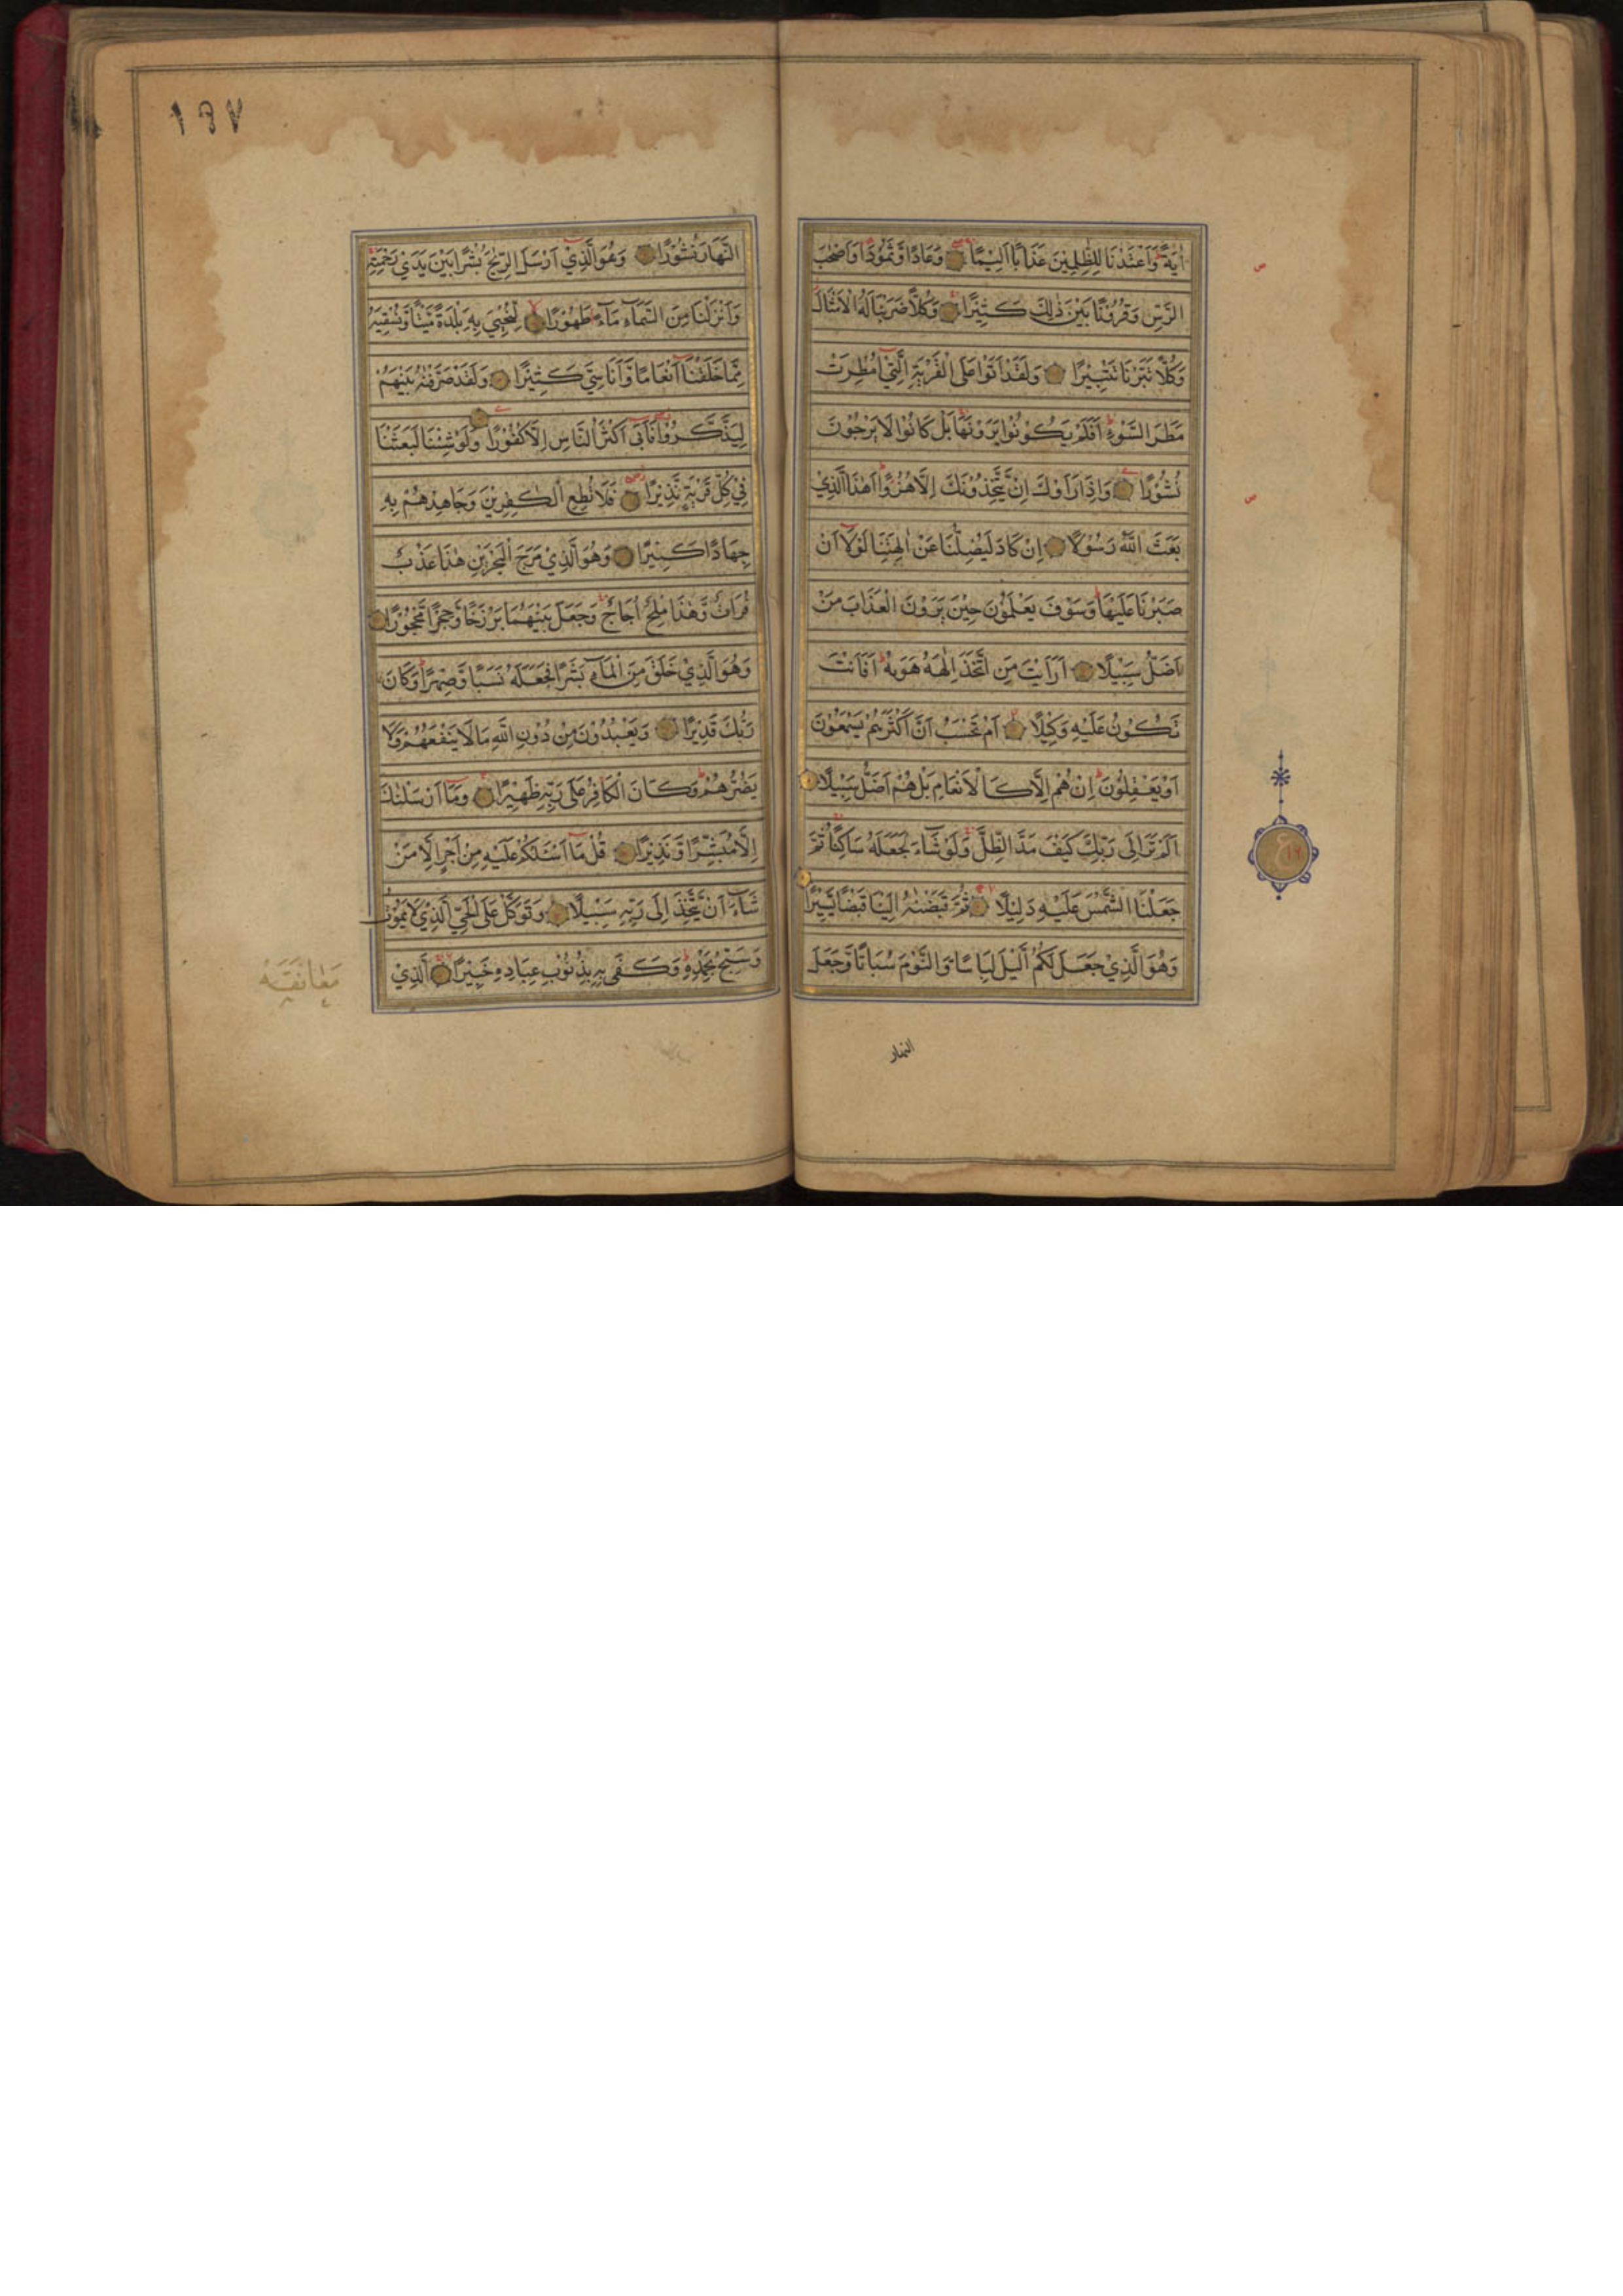 اٰيَةً وَاَعْتَدْنَا لِلظّٰلِمِيْنَ عَذَابًا اَلِيْمًا وَعَادًا وَّثَمُوْدَا وَاَصْحٰبَ
الرَّسِّ وَقُرُوْنًا بَيْنَ ذٰلِكَ كَثِيْرًا وَكُلًّا ضَرَبْنَا لَهُ الْاَمْثَالَ
وَكُلًّا تَبَّرْنَا تَتْبِيْرًا وَلَقَدْ اَتَوْا عَلَى الْقَرْيَةِ الَّتِيْ اُمْطِرَتْ
مَطَرَ السَّوْءِ اَفَلَمْ يَكُوْنُوْا يَرَوْنَهَا بَلْ كَانُوْا لَا يَرْجُوْنَ
نُشُوْرًا وَاِذَا رَاَوْكَ اِنْ يَّتَّخِذُوْنَكَ اِلَّا هُزُوًا اَهٰذَا الَّذِيْ
بَعَثَ اللّٰهُ رَسُوْلًا اِنْ كَادَ لَيُضِلُّنَا عَنْ اٰلِهَتِنَا لَوْلَا اَنْ
صَبَرْنَا عَلَيْهَا وَسَوْفَ يَعْلَمُوْنَ حِيْنَ يَرَوْنَ الْعَذَابَ مَنْ
اَضَلُّ سَبِيْلًا اَرَاَيْتَ مَنِ اتَّخَذَ اِلٰهَهُ هَوٰىهُ اَفَاَنْتَ
تَكُوْنُ عَلَيْهِ وَكِيْلًا اَمْ تَحْسَبُ اَنَّ اَكْثَرَهُمْ يَسْمَعُوْنَ
اَوْ يَعْقِلُوْنَ اِنْ هُمْ اِلَّا كَالْاَنْعَامِ بَلْ هُمْ اَضَلُّ سَبِيْلًا
اَلَمْ تَرَ اِلٰى رَبِّكَ كَيْفَ مَدَّ الظِّلَّ وَلَوْ شَآءَ لَجَعَلَهُ سَاكِنًا ثُمَّ
جَعَلْنَا الشَّمْسَ عَلَيْهِ دَلِيْلًا ثُمَّ قَبَضْنٰهُ اِلَيْنَا قَبْضًا يَّسِيْرًا
وَهُوَ الَّذِيْ جَعَلَ لَكُمُ الَّيْلَ لِبَاسًا وَّالنَّوْمَ سُبَاتًا وَّجَعَلَ
النهار
١٩٧
النَّهَارَ نُشُوْرًا وَهُوَ الَّذِيْ اَرْسَلَ الرِّيٰحَ بُشْرًا بَيْنَ يَدَيْ رَحْمَتِهِ
وَاَنْزَلْنَا مِنَ السَّمَآءِ مَآءً طَهُوْرًا لِّنُحْيِيَ بِهِ بَلْدَةً مَّيْتًا وَّنُسْقِيَهُ
مِمَّا خَلَقْنَا اَنْعَامًا وَّاَنَاسِيَّ كَثِيْرًا وَلَقَدْ صَرَّفْنٰهُ بَيْنَهُمْ
لِيَذَّكَّرُوْا فَاَبٰى اَكْثَرُ النَّاسِ اِلَّا كُفُوْرًا وَلَوْ شِئْنَا لَبَعَثْنَا
فِيْ كُلِّ قَرْيَةٍ نَّذِيْرًا فَلَا تُطِعِ الْكٰفِرِيْنَ وَجَاهِدْهُمْ بِهِ
جِهَادًا كَبِيْرًا وَهُوَ الَّذِيْ مَرَجَ الْبَحْرَيْنِ هٰذَا عَذْبٌ
فُرَاتٌ وَّهٰذَا مِلْحٌ اُجَاجٌ وَجَعَلَ بَيْنَهُمَا بَرْزَخًا وَّحِجْرًا مَّحْجُوْرًا
وَهُوَ الَّذِيْ خَلَقَ مِنَ الْمَآءِ بَشَرًا فَجَعَلَهُ نَسَبًا وَّصِهْرًا وَكَانَ
رَبُّكَ قَدِيْرًا وَيَعْبُدُوْنَ مِنْ دُوْنِ اللّٰهِ مَا لَا يَنْفَعُهُمْ وَلَا
يَضُرُّهُمْ وَكَانَ الْكَافِرُ عَلٰى رَبِّهِ ظَهِيْرًا وَمَا اَرْسَلْنٰكَ
اِلَّا مُبَشِّرًا وَّنَذِيْرًا قُلْ مَا اَسْئَلُكُمْ عَلَيْهِ مِنْ اَجْرٍ اِلَّا مَنْ
شَآءَ اَنْ يَّتَّخِذَ اِلٰى رَبِّهِ سَبِيْلًا وَتَوَكَّلْ عَلَى الْحَيِّ الَّذِيْ لَا يَمُوْتُ
وَسَبِّحْ بِحَمْدِهِ وَكَفٰى بِهِ بِذُنُوْبِ عِبَادِهِ خَبِيْرًا الَّذِيْ
مَعَانَقَه